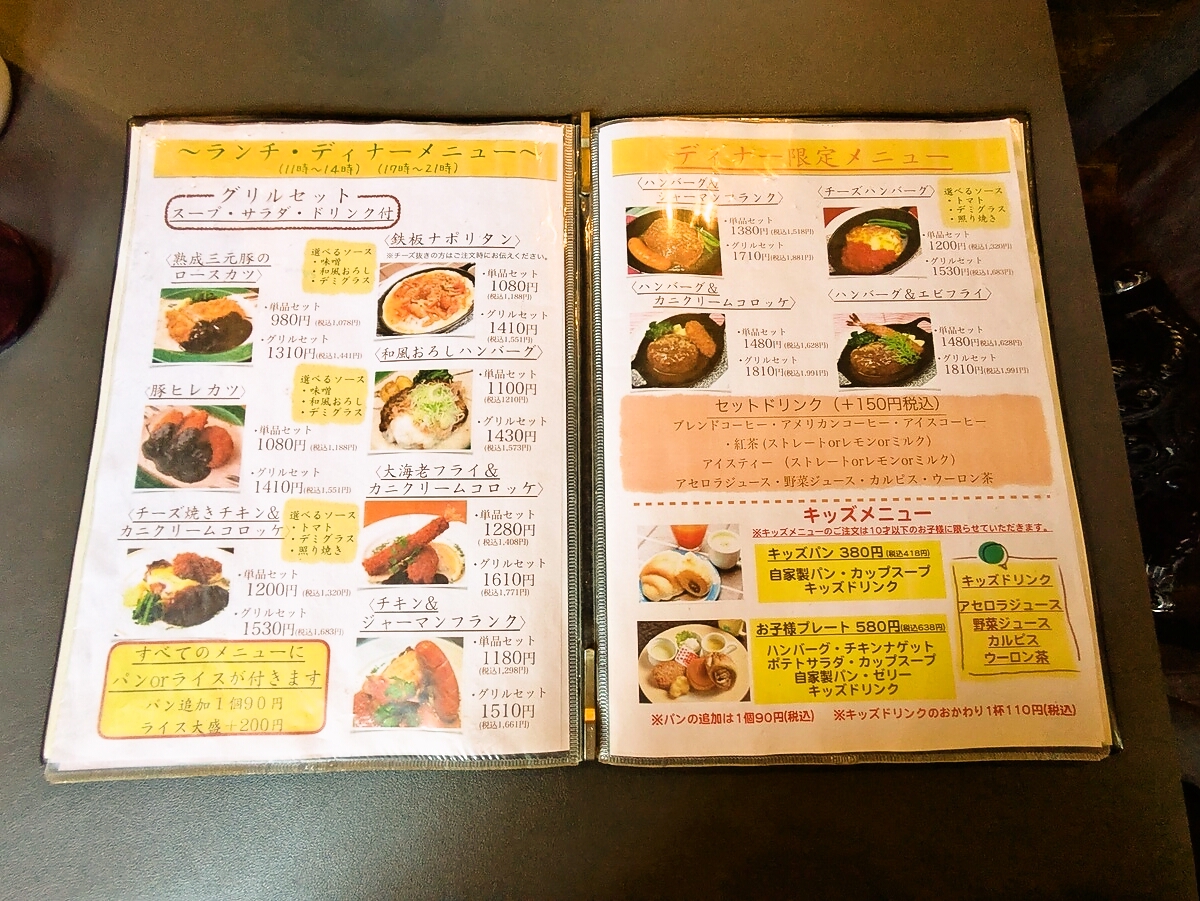 ～ランチ・ディナーメニュー～
(11時～14時) (17時～21時)
グリルセット
スープ・サラダ・ドリンク付
〈熟成三元豚の
ロースカツ〉
選べるソース
・味噌
・和風おろし
・デミグラス
・単品セット
980円(税込1,078円)
・グリルセット
1310円(税込1,441円)
〈豚ヒレカツ〉
選べるソース
・味噌
・和風おろし
・デミグラス
・単品セット
1080円(税込1,188円)
・グリルセット
1410円(税込1,551円)
〈チーズ焼きチキン＆
カニクリームコロッケ〉
選べるソース
・トマト
・デミグラス
・照り焼き
・単品セット
1200円(税込1,320円)
・グリルセット
1530円(税込1,683円)
すべてのメニューに
パンorライスが付きます
パン追加1個90円
ライス大盛+200円
〈鉄板ナポリタン〉
※チーズ抜きの方はご注文時にお伝えください。
・単品セット
1080円
(税込1,188円)
・グリルセット
1410円
(税込1,551円)
〈和風おろしハンバーグ〉
・単品セット
1100円
(税込1210円)
・グリルセット
1430円
(税込1,573円)
〈大海老フライ＆
カニクリームコロッケ〉
・単品セット
1280円
(税込1,408円)
・グリルセット
1610円
(税込1,771円)
〈チキン＆
ジャーマンフランク〉
・単品セット
1180円
(税込1,298円)
・グリルセット
1510円
(税込1,661円)
ディナー限定メニュー
〈ハンバーグ＆
ジャーマンフランク〉
・単品セット
1380円(税込1,518円)
・グリルセット
1710円(税込1,881円)
〈チーズハンバーグ〉
選べるソース
・トマト
・デミグラス
・照り焼き
・単品セット
1200円(税込1,320円)
・グリルセット
1530円(税込1,683円)
〈ハンバーグ＆
カニクリームコロッケ〉
・単品セット
1480円(税込1,628円)
・グリルセット
1810円(税込1,991円)
〈ハンバーグ＆エビフライ〉
・単品セット
1480円(税込1,628円)
・グリルセット
1810円(税込1,991円)
セットドリンク（+150円税込）
ブレンドコーヒー・アメリカンコーヒー・アイスコーヒー
・紅茶(ストレートorレモンorミルク)
アイスティー （ストレートorレモンorミルク）
アセロラジュース・野菜ジュース・カルピス・ウーロン茶
キッズメニュー
※キッズメニューのご注文は10才以下のお子様に限らせていただきます。
キッズパン 380円(税込418円)
自家製パン・カップスープ
キッズドリンク
お子様プレート 580円(税込638円)
ハンバーグ・チキンナゲット
ポテトサラダ・カップスープ
自家製パン・ゼリー
キッズドリンク
キッズドリンク
アセロラジュース
野菜ジュース
カルピス
ウーロン茶
※パンの追加は1個90円(税込) ※キッズドリンクのおかわり1杯110円(税込)